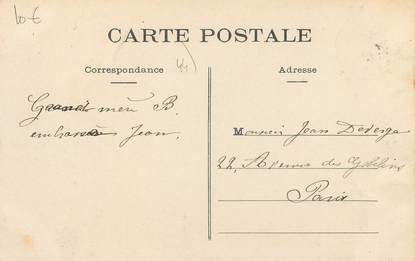 10 €
44
CARTE POSTALE
Correspondance
Adresse
Grand mère B.
embrasse Jean.
Monsieur Jean
22, Avenue des Gobelins
Paris